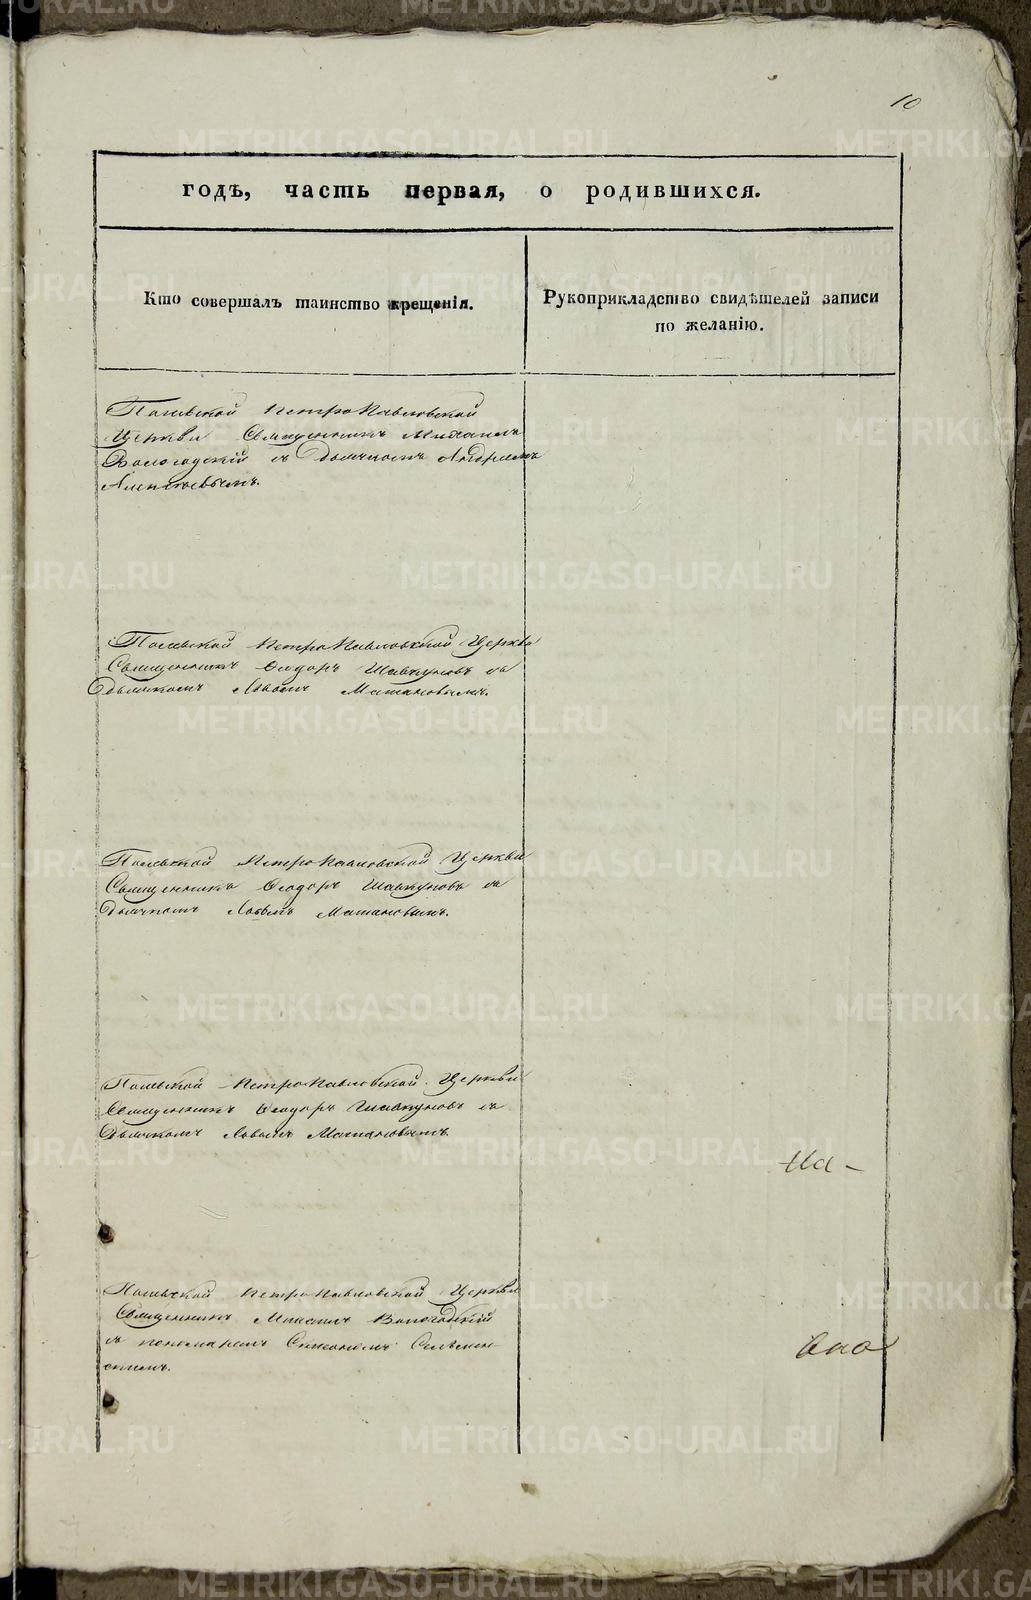 10
годъ, часть первая, о родившихся.
Кто совершалъ таинство крещенія.
Рукоприкладство свидѣтелей записи
по желанію.
Полевской Петро Павловской
Церкви Священникъ Михаилъ
Вологодскій съ дьячкомъ Андреемъ
Алексѣевымъ.
Полевской Петро Павловской Церкви
Священникъ Ѳеодоръ Шавкуновъ съ
дьячкомъ Львомъ
Полевской Петро Павловской Церкви
Священникъ Ѳеодоръ Шавкуновъ съ
Дьячкомъ Львомъ
Полевской Петро Павловской Церкви
Священникъ Ѳеодоръ Шавкуновъ съ
Дьячкомъ Львомъ
На -
Полевской Петро Павловской Церкви
Священникъ Михаилъ Вологодскій
съ пономаремъ
METRIKI.GASO-URAL.RU